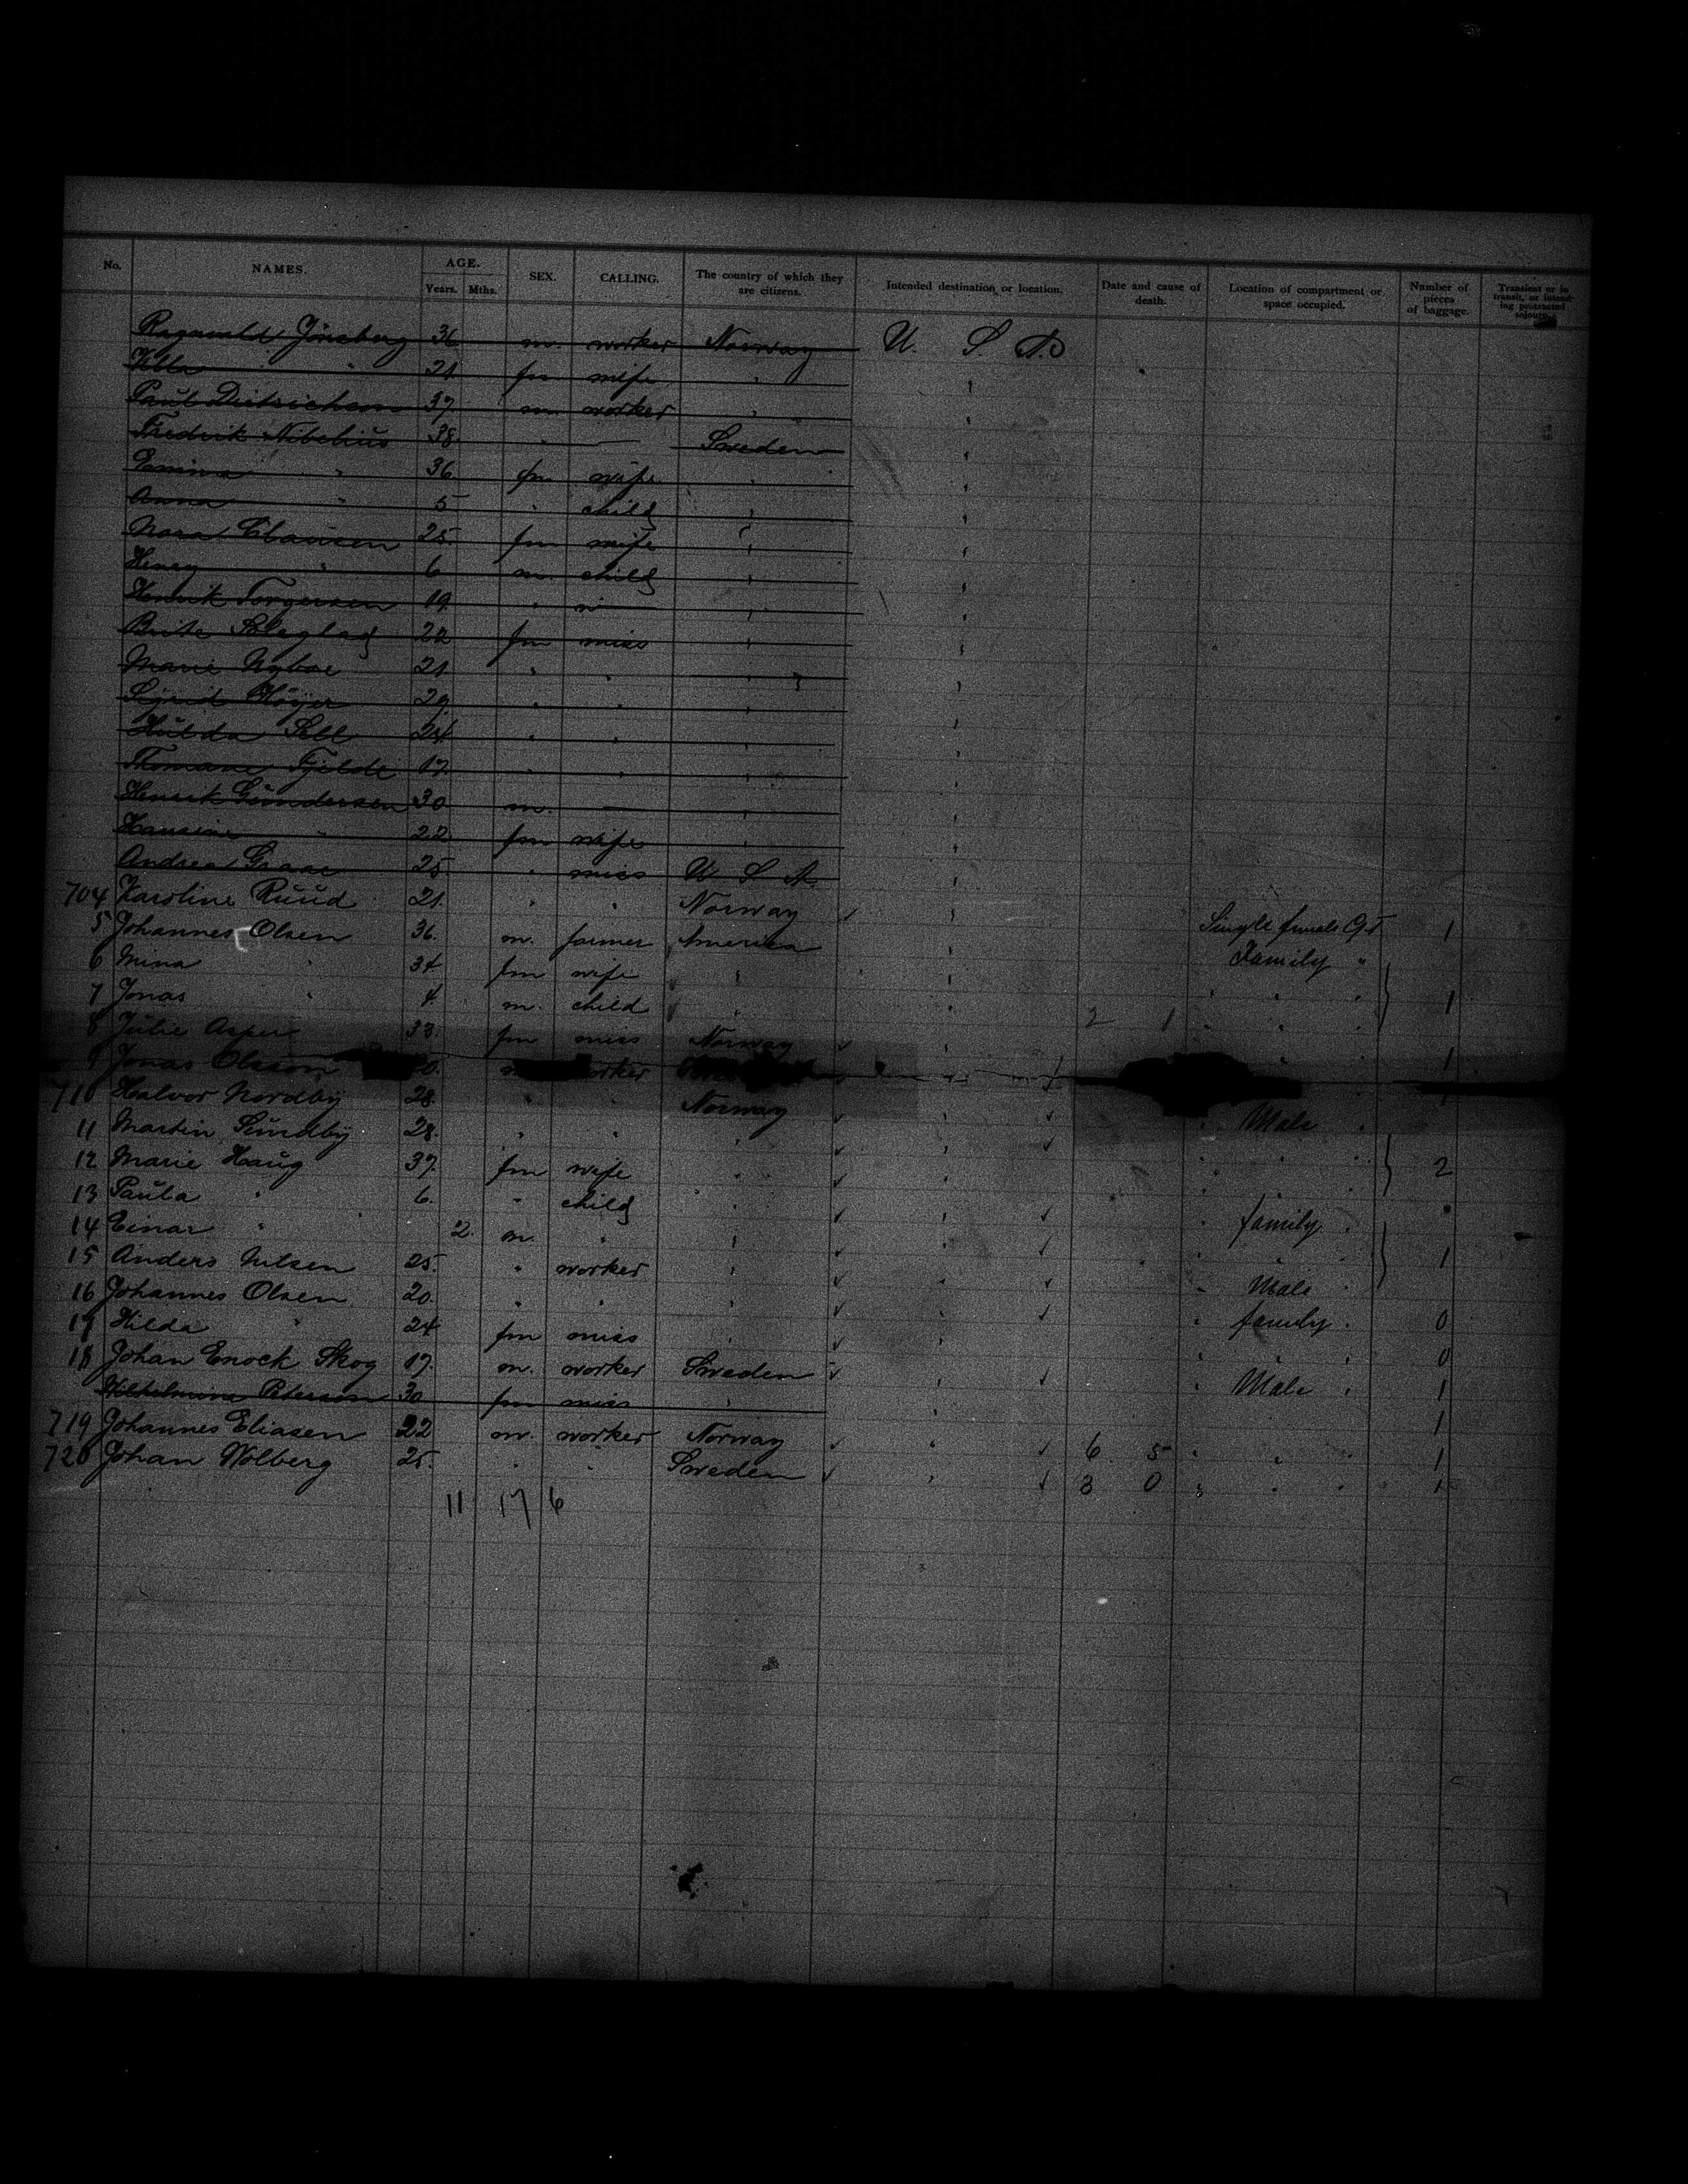 No. NAMES. AGE. Years. Mths. SEX. CALLING. The country of which they are citizens. Intended destination or location. Date and cause of death. Location of compartment or space occupied. Number of pieces of baggage. Transient or in transit, or intending protracted sojourn.
Ragnvald 36 m. worker Norway U. S. A.
21 fm wife "
Paul Dietrichson 37 m. worker "
Fredrik 38 " — Sweden
Emma " 36 fm wife "
Anna " 5 " child "
Nora Clausen 25. fm wife "
Henry " 6 m. child "
Henrik Torgersen 19 "
22 fm miss "
Marie Nyboe 21 " " "
Sigrid 29 " " "
Hulda Sell 24 " " "
Thomane Fjelde 17. " " "
Henrik Gundersen 30 m. — "
Hansine " 22 fm wife "
Andrea Graae 25 " miss U S A.
704 Karoline Ruud 21. " " Norway " Single female 1
5 Johannes Olsen 36. m. farmer America " Family "
6 Mina " 34 fm wife " " " " "
7 Jonas " 4. m. child " " 2 1 " " " 1
8 Julie 33. fm miss Norway "
9 Jonas Olsson 1
710 Halvor Nordby 28. " " Norway " " Male "
11 Martin Sundby 28. " " " " " " "
12 Marie Haug 37. fm wife " " 2
13 Paula " 6. " child " " " family "
14 Einar " 2. m. " " " " " "
15 Anders Nilsen 25. " worker " " " Male " 1
16 Johannes Olsen 20. " " " " " family "
17 Hilda " 24 fm miss " " 0
18 Johan Enock Skog 17. m. worker Sweden " " Male " 1
Wilhelmine Peterson 30 fm miss "
719 Johannes Eliasen 22 m. worker Norway " 6 5 " " 1
720 Johan Wolberg 25. " " Sweden " 3 0 " " " 1
11 17 6